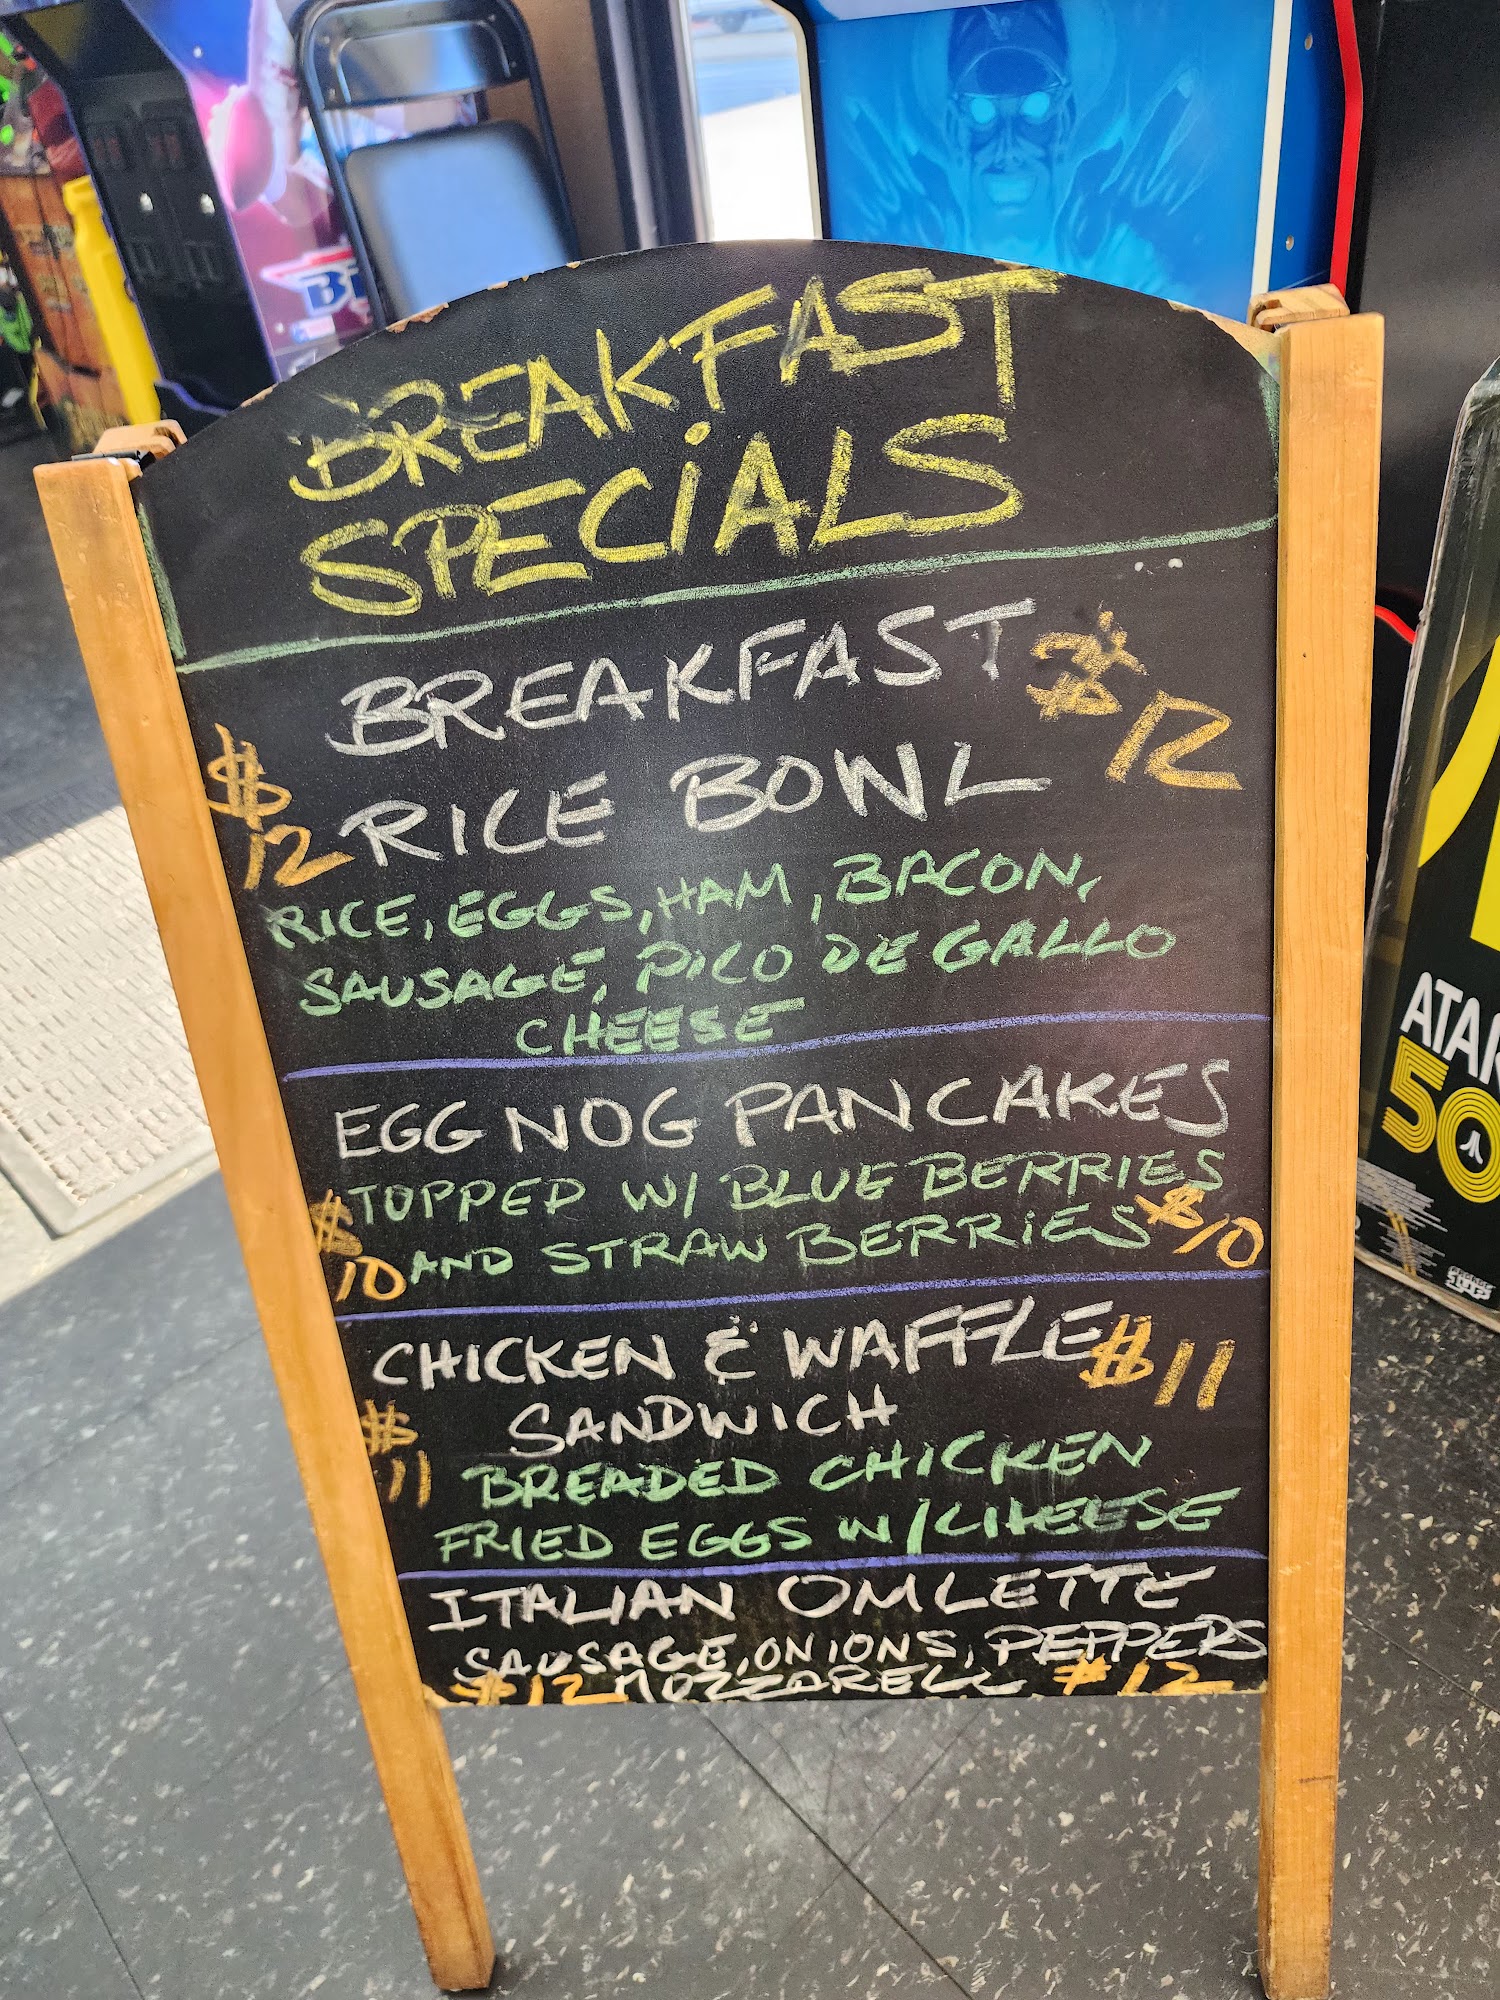 BREAKFAST
SPECIALS
BREAKFAST
$12
$12
RICE BOWL
RICE, EGGS, HAM, BACON,
SAUSAGE, PICO DE GALLO
CHEESE
EGG NOG PANCAKES
TOPPED W/ BLUE BERRIES
$10
AND STRAW BERRIES
$10
CHICKEN & WAFFLE
$11
SANDWICH
$11
BREADED CHICKEN
FRIED EGGS W/ CHEESE
ITALIAN OMLETTE
SAUSAGE, ONIONS, PEPPERS
$12 MOZZARELL $12
ATAR
50